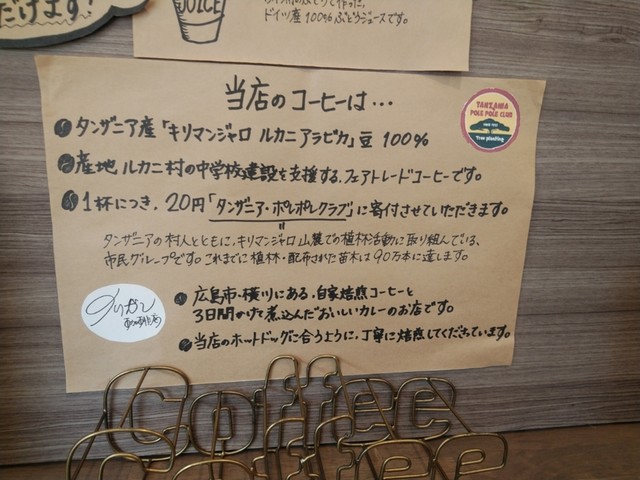 だけます!
JUICE
ドイツ産100%ぶどうジュースです。
当店のコーヒーは…
タンザニア産「キリマンジャロ ルカニアラビカ」豆 100%
産地 ルカニ村の中学校建設を支援する、フェアトレードコーヒーです。
1杯につき、20円「タンザニア・ポレポレクラブ」に寄付させていただきます。
タンザニアの村人とともに、キリマンジャロ山麓での植林活動に取り組んでいる、
市民グループです。これまでに植林・配布された苗木は90万本に達します。
TANZANIA
POLE POLE CLUB
Tree planting
広島市・横川にある、自家焙煎コーヒーと
3日間かけて煮込んだおいしいカレーのお店です。
当店のホットドッグに合うように、丁寧に焙煎してくださっています。
Coffee
Coffee